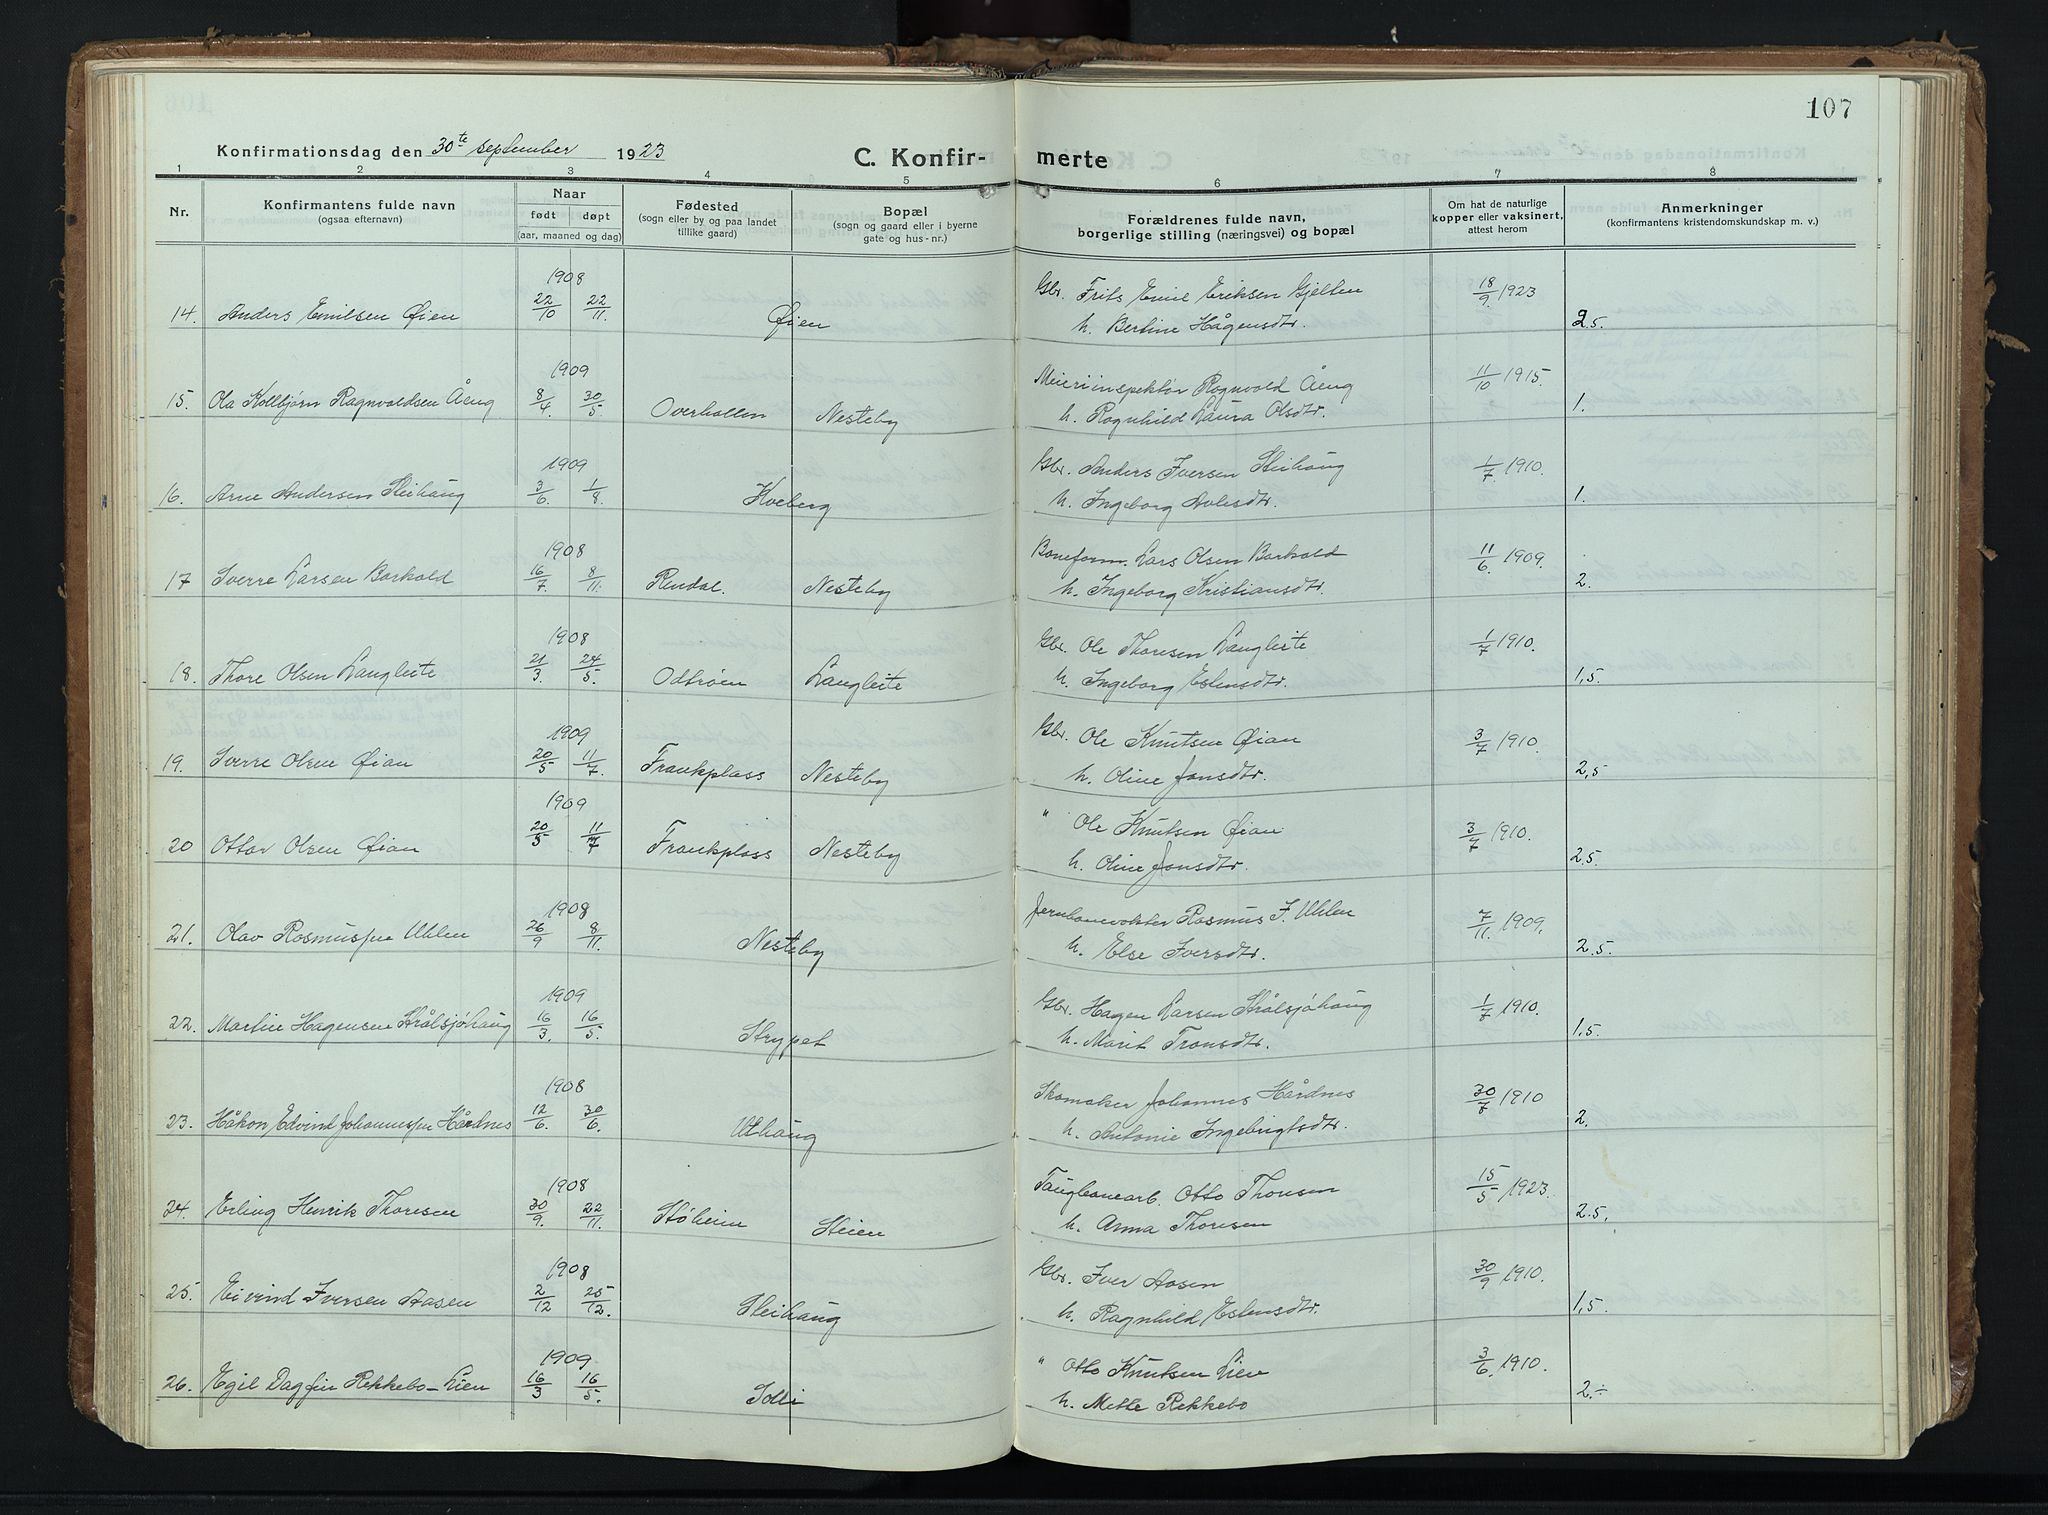 107
Konfirmationsdag den 30te september 1923
C. Konfir- merte
1 2 3 4 5 6 7 8
Nr.
Konfirmantens fulde navn
(ogsaa efternavn)
Naar
født døpt
(aar, maaned og dag)
Fødested
(sogn eller by og paa landet
tillike gaard)
Bopæl
(sogn og gaard eller i byerne
gate og hus-nr.)
Forældrenes fulde navn,
borgerlige stilling (næringsvei) og bopæl
Om hat de naturlige
kopper eller vaksinert,
attest herom
Anmerkninger
(konfirmantens kristendomskundskap m. v.)
1908 Gbr. Frits Emil Eriksen Gjelten
14. Anders Emilsen Øien 22/10 22/11. Øien 18/9. 1923 2.5.
h. Bertine Hågensdtr.
1909 Meieriinspektør Ragnvald Åeng
15. Ola Kolbjørn Ragnvaldsen Åeng 8/4. 30/5. Overhallen Nesteby 11/10 1915. 1.
h. Ragnhild Laura Olsdtr.
1909 Gbr. Anders Iversen Sleihaug
16. Arne Andersen Sleihaug 3/6. 1/8. Kveberg 1/7 1910. 1.
h. Ingeborg Avlesdtr.
1908 Baneform. Lars Olsen Barkald
17 Sverre Larsen Barkald 16/7. 8/11. Rendal. Nesteby 11/6. 1909. 2.
h. Ingeborg Kristiansdtr.
1908 Gbr. Ole Thoresen Langleite
18. Thore Olsen Langleite 21/3. 24/5. Odtrøen Langleite 1/7 1910. 1,5.
h. Ingeborg Estensdtr.
1909 Gbr. Ole Knutsen Øian
19. Sverre Olsen Øian 20/5 11/7. Frankplass Nesteby 3/7 1910. 2,5
h. Oline Jonsdtr.
1909 " Ole Knutsen Øian
20 Ottar Olsen Øian 20/5 11/7 Frankplass Nesteby 3/7 1910. 2.5.
h. Oline Jonsdtr.
1908 Jernbanevokter Rasmus I. Uhlen
21. Olav Rasmussen Uhlen 26/9 8/11. Nesteby 7/11. 1909. 2.5.
h. Else Iversdtr.
1909 Gbr. Hagen Larsen Strålsjøhaug
22. Martin Hagensen Strålsjøhaug 16/3. 16/5. Strypet 1/7 1910. 1,5.
h. Marit Tronsdtr.
1908 Skomaker Johannes Hårdnes
23. Håkon Edvind Johannessen Hårdnes 12/6. 30/6. Uthaug 30/7 1910 2.
h. Antonie Ingebrigtsdtr.
1908 Taugbanearb. Otto Thoresen
24. Erling Henrik Thoresen 30/9. 22/11. Støheim Steien 15/5 1923. 2.5.
h. Anna Thoresen
1908 Gbr. Iver Aasen
25. Eivind Iversen Aasen 2/12 25/12. Sleihaug 30/9 1910. 1,5.
h. Ragnhild Estensdtr.
1909 " Otto Knutsen Lien
26. Egil Dagfin Rekkebo-Lien 16/3 16/5. 3/6. 1910. 2.÷
h. Mette Rekkebo